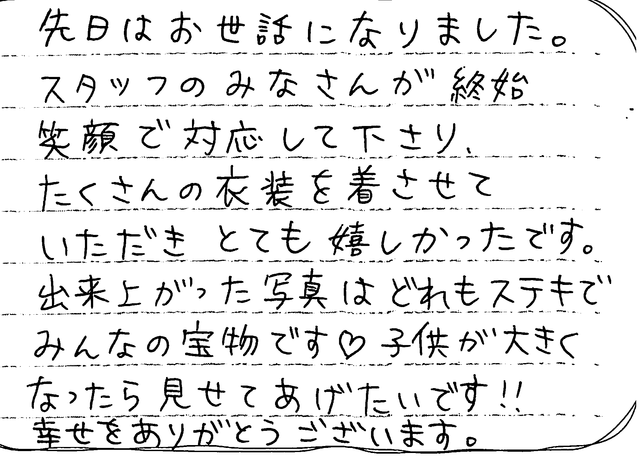 先日はお世話になりました。
スタッフのみなさんが終始
笑顔で対応して下さり、
たくさんの衣装を着させて
いただき とても嬉しかったです。
出来上がった写真はどれもステキで
みんなの宝物です♡子供が大きく
なったら見せてあげたいです!!
幸せをありがとうございます。